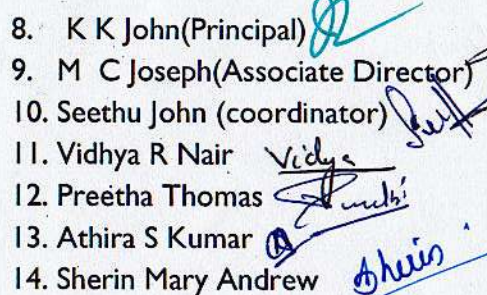 8. K K John(Principal)
9. M C Joseph(Associate Director)
10. Seethu John (coordinator)
11. Vidhya R Nair Vidya
12. Preetha Thomas
13. Athira S Kumar
14. Sherin Mary Andrew Sherin